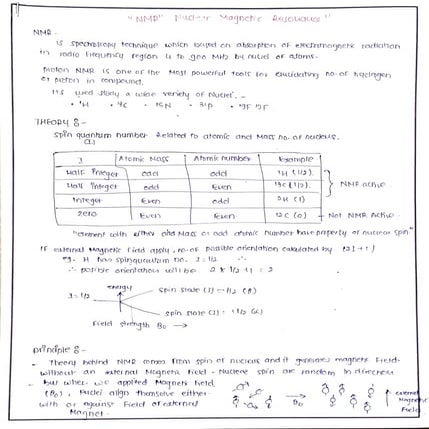 "NMR" Nuclear Magnetic Resonance"
NMR -
Is spectroscopy technique which based on absorption of electromagnetic radiation
in radio frequency region 4 to 900 MHz by nuclei of atoms.
proton NMR is one of the most powerful tools for elucidating no. of hydrogen
or proton in compound.
It's used study a wide variety of nuclei. -
• 1H • 15N • 31P • 19F
THEORY :-
Spin quantum number Related to atomic and mass no. of nucleus.
(I)
I Atomic Mass Atomic number Example
Half Integer odd odd 1H (1/2)
Half Integer odd Even 13C (1/2)
Integer Even odd 2H (1)
Zero Even Even 12C (0)
NMR active
Not NMR Active
"element with either odd Mass or odd atomic Number have property of nuclear spin"
If external Magnetic field apply, no. of posible orientation calculated by (2I + 1)
eg. H has spin quantum no. I = 1/2
∴ posible orientation will be 2 x 1/2 + 1 = 2
energy
I = 1/2
spin state (I) = -1/2 (β)
spin state (I) = 1/2 (α)
Field strength B0 →
principle :-
• Theory behind NMR comes from spin of nucleus and it generates magnetic field.
without an external Magnetic field - Nuclear spin are random in direction
• but when we applied Magnetic field
(B0), nuclei align themselve either
with or against Field of external
Magnet.
B0
external
Magnetic
Field